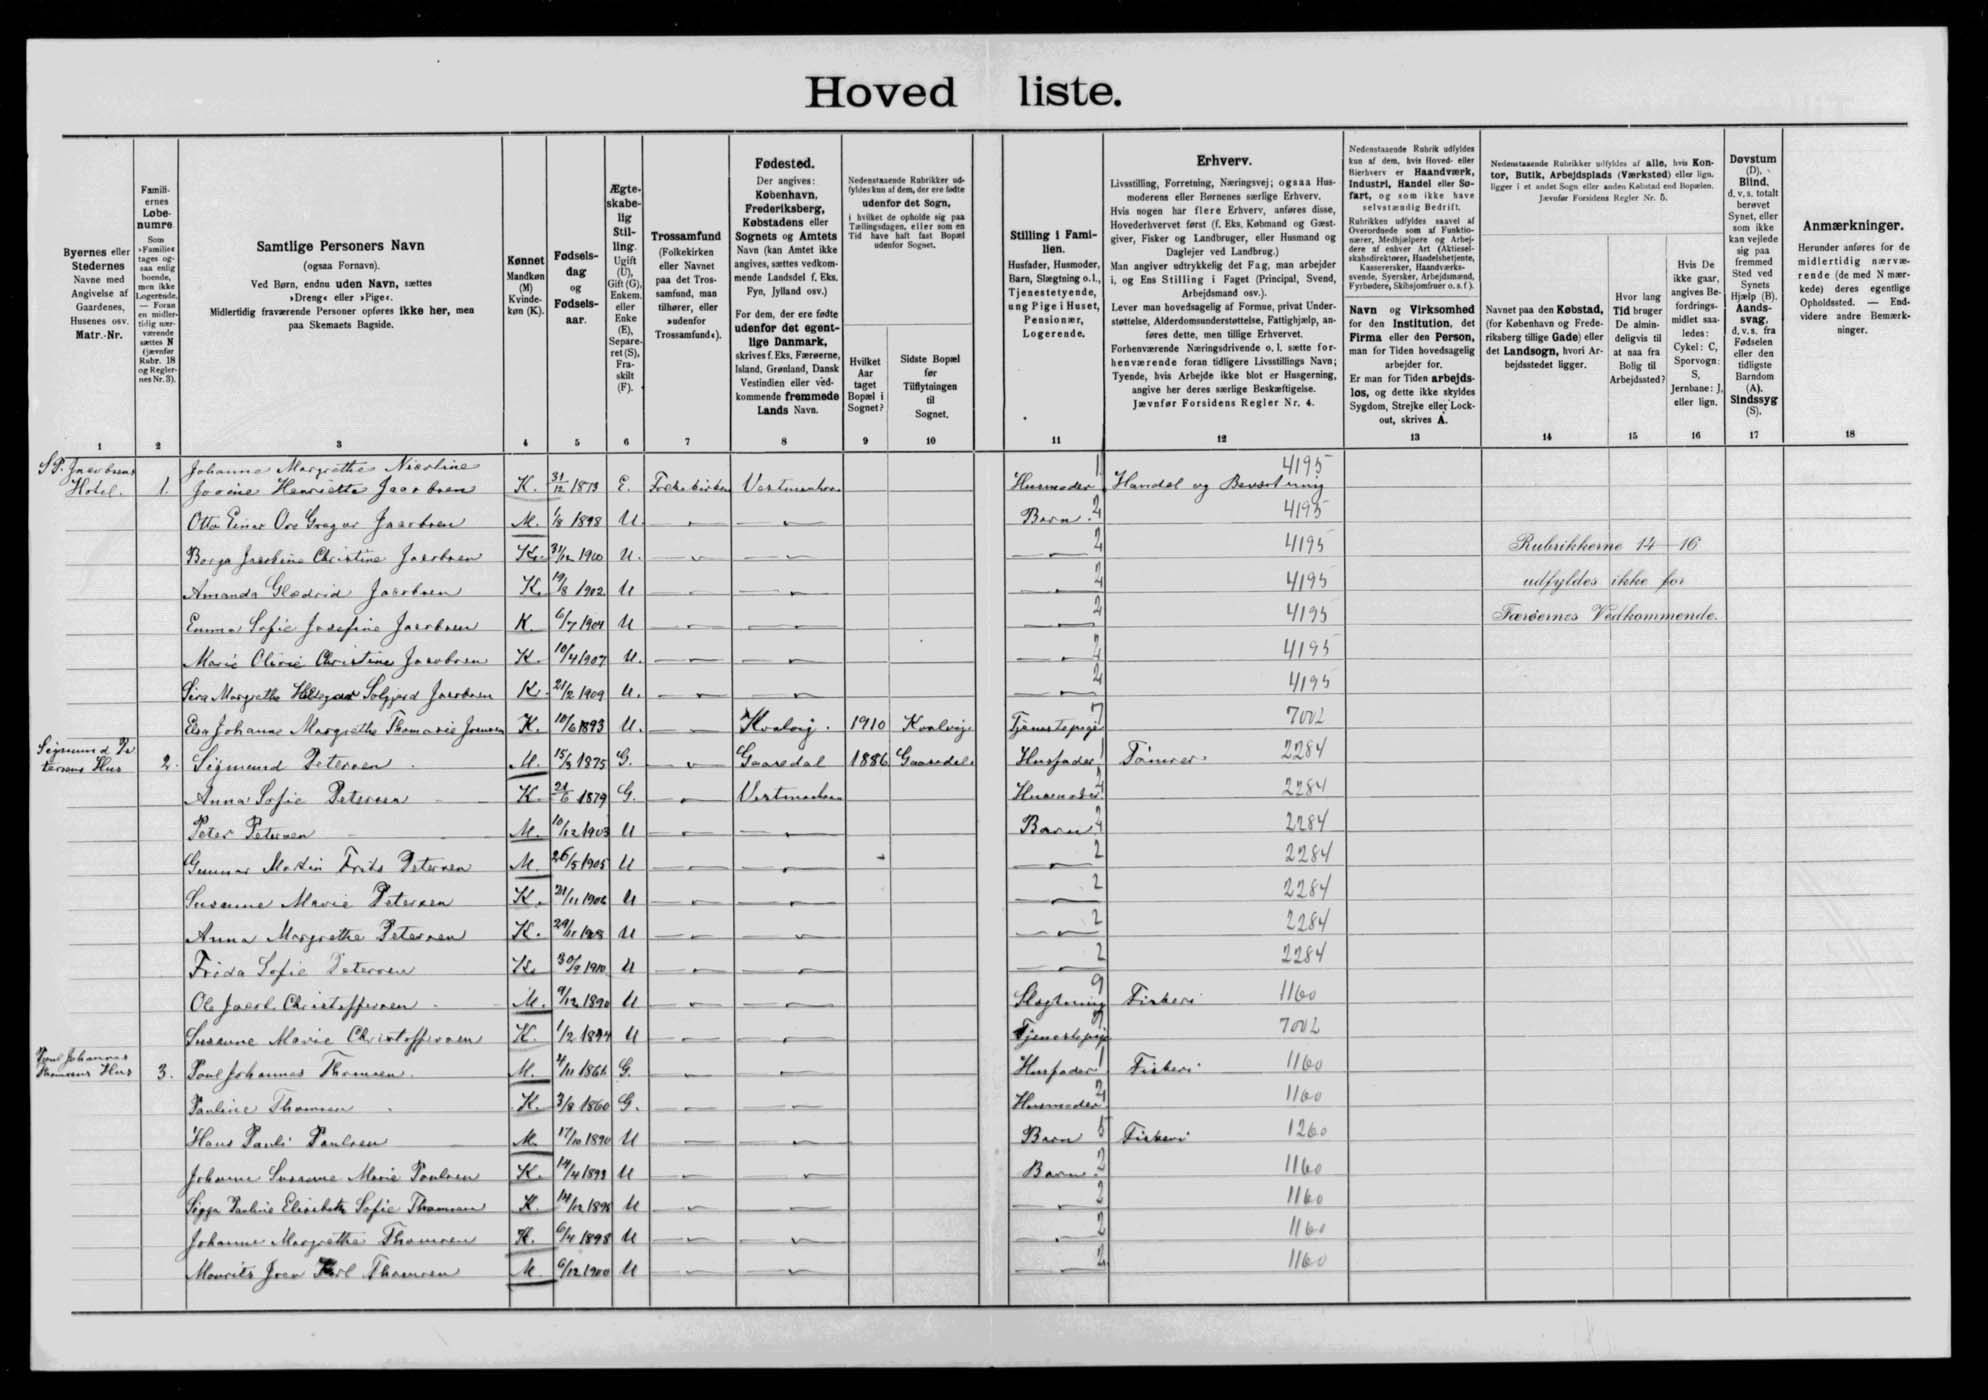 Hoved liste.
Byernes eller Stedernes Navne med Angivelse af Gaardenes, Husenes osv. Matr.-Nr.
Famili-ernes Løbe-numre. Som »Familie« tages og-saa enlig boende, men ikke Logerende. — Foran en midler-tidig nær-værende sættes N (jævnfør Rubr. 18 og Regler-nes Nr. 3).
Samtlige Personers Navn
(ogsaa Fornavn).
Ved Børn, endnu uden Navn, sættes
»Dreng« eller »Pige«.
Midlertidig fraværende Personer opføres ikke her, men
paa Skemaets Bagside.
Kønnet Mandkøn (M) Kvinde-køn (K).
Fødsels-dag og Fødsels-aar.
Ægte-skabe-lig Stil-ling. Ugift (U), Gift (G), Enkem. eller Enke (E), Separe-ret (S), Fra-skilt (F).
Trossamfund (Folkekirken eller Navnet paa det Tros-samfund, man tilhører, eller »udenfor Trossamfund«).
Fødested.
Der angives:
København,
Frederiksberg,
Købstadens eller
Sognets og Amtets
Navn (kan Amtet ikke
angives, sættes vedkom-
mende Landsdel f. Eks.
Fyn, Jylland osv.)
For dem, der ere fødte
udenfor det egent-
lige Danmark,
skrives f. Eks. Færøerne,
Island, Grønland, Dansk
Vestindien eller ved-
kommende fremmede
Lands Navn.
Nedenstaaende Rubrikker ud-
fyldes kun af dem, der ere fødte
udenfor det Sogn,
i hvilket de opholde sig paa
Tællingsdagen, eller som en
Tid have haft fast Bopæl
udenfor Sognet.
Hvilket Aar taget Bopæl i Sognet?
Sidste Bopæl før Tilflytningen til Sognet.
Stilling i Fami-lien.
Husfader, Husmoder, Barn, Slægtning o. l., Tjenestetyende, ung Pige i Huset, Pensionær, Logerende.
Erhverv.
Livsstilling, Forretning, Næringsvej; ogsaa Hus-
moderens eller Børnenes særlige Erhverv.
Hvis nogen har flere Erhverv, anføres disse,
Hovederhvervet først (f. Eks. Købmand og Gæst-
giver, Fisker og Landbruger, eller Husmand og
Daglejer ved Landbrug.)
Man angiver udtrykkelig det Fag, man arbejder
i, og Ens Stilling i Faget (Principal, Svend,
Arbejdsmand osv.).
Lever man hovedsagelig af Formue, privat Under-
støttelse, Alderdomsunderstøttelse, Fattighjælp, an-
føres dette, men tillige Erhvervet.
Forhenværende Næringsdrivende o. l. sætte for-
henværende foran tidligere Livsstillings Navn;
Tyende, hvis Arbejde ikke blot er Husgerning,
angive her deres særlige Beskæftigelse.
Jævnfør Forsidens Regler Nr. 4.
Nedenstaaende Rubrik udfyldes
kun af dem, hvis Hoved- eller
Bierhverv er Haandværk,
Industri, Handel eller Sø-
fart, og som ikke have
selvstændig Bedrift.
Rubrikken udfyldes saavel af
Overordnede som af Funktio-
nærer, Medhjælpere og Arbej-
dere af enhver Art (Aktiesel-
skabsdirektører, Handelsbetjente,
Kasserersker, Haandværks-
svende, Syersker, Arbejdsmænd,
Fyrbødere, Skibsjomfruer o. s. f.).
Navn og Virksomhed
for den Institution, det
Firma eller den Person,
man for Tiden hovedsagelig
arbejder for.
Er man for Tiden arbejds-
løs, og dette ikke skyldes
Sygdom, Strejke eller Lock-
out, skrives A.
Nedenstaaende Rubrikker udfyldes af alle, hvis Kon-
tor, Butik, Arbejdsplads (Værksted) eller lign.
ligger i et andet Sogn eller anden Købstad end Bopælen.
Jævnfør Forsidens Regler Nr. 5.
Navnet paa den Købstad, (for København og Frede-riksberg tillige Gade) eller det Landsogn, hvori Ar-bejdsstedet ligger.
Hvor lang Tid bruger De almin-deligvis til at naa fra Bolig til Arbejdssted?
Hvis De ikke gaar, angives Be-fordrings-midlet saa-ledes: Cykel: C, Sporvogn: S, Jernbane: J, eller lign.
Døvstum (D). Blind, d. v. s. totalt berøvet Synet, eller som ikke kan vejlede sig paa fremmed Sted ved Synets Hjælp (B). Aands-svag, d. v. s. fra Fødselen eller den tidligste Barndom (A). Sindssyg (S).
Anmærkninger.
Herunder anføres for de
midlertidig nærvæ-
rende (de med N mær-
kede) deres egentlige
Opholdssted. — End-
videre andre Bemærk-
ninger.
1 2 3 4 5 6 7 8 9 10 11 12 13 14 15 16 17 18
Johanne Margrethe Nicoline 1 4195
Hotel. 1. Henriette Jacobsen K. 31/12 1873 E. Folkekirken Vestmanhavn Husmoder Handel og Bevertning
Otto Einar Ove Gregor Jacobsen M. 1/8 1898 U. Barn. 2 4195
Jacobine Christine Jacobsen K. 31/12 1900 U. 2 4195 Rubrikkerne 14-16
Amanda Jacobsen K. 19/8 1902 U 2 4195 udfyldes ikke for
Emma Sofie Josefine Jacobsen K. 6/7 1904 U 2 4195 Færøernes Vedkommende.
Marie Olivie Christine Jacobsen K. 10/4 1907 U. 2 4195
Margrethe Jacobsen K. 21/2 1909 U. 2 4195
Elsa Johanne Margrethe Thomasie Joensen K. 10/6 1893 U. Kvalvig. 1910 Kvalvig Tjenestepige 7 7002
Sigmund Pe
tersens Hus 2. Sigmund Petersen M. 15/3 1875 G. Gaasedal 1886 Gaasedal Husfader 1 Tømrer. 2284
Anna Sofie Petersen K. 21/6 1879 G. Vestmanhavn Husmoder 2 2284
Peter Petersen M. 10/12 1903 U Barn 2 2284
Gunnar Martin Frits Petersen M. 26/5 1905 U 2 2284
Susanne Marie Petersen K. 21/11 1906 U 2 2284
Anna Margrethe Petersen K. 29/11 1908 U 2 2284
Frida Sofie Petersen K. 30/9 1910 U 2 2284
Ole Jacob Christoffersen M. 9/12 1890 U Slægtning 9 Fiskeri 1160
Susanne Marie Christoffersen K. 1/2 1894 U Tjenestepige 7 7002
Poul Johannes
Thomsens Hus 3. Poul Johannes Thomsen M. 4/11 1861 G. Husfader 1 Fiskeri 1160
Pauline Thomsen K. 3/8 1860 G. Husmoder 2 1160
Hans Pauli Poulsen M. 17/10 1890 U Barn 5 Fiskeri 1260
Johanne Susanne Marie Poulsen K. 14/4 1893 U Barn 2 1160
Sigga Pauline Elisabeth Sofie Thomsen K. 14/12 1895 U 2 1160
Johanne Margrethe Thomsen K. 6/4 1898 U 2 1160
Mourits Joen Karl Thomsen M. 6/12 1900 U 2 1160